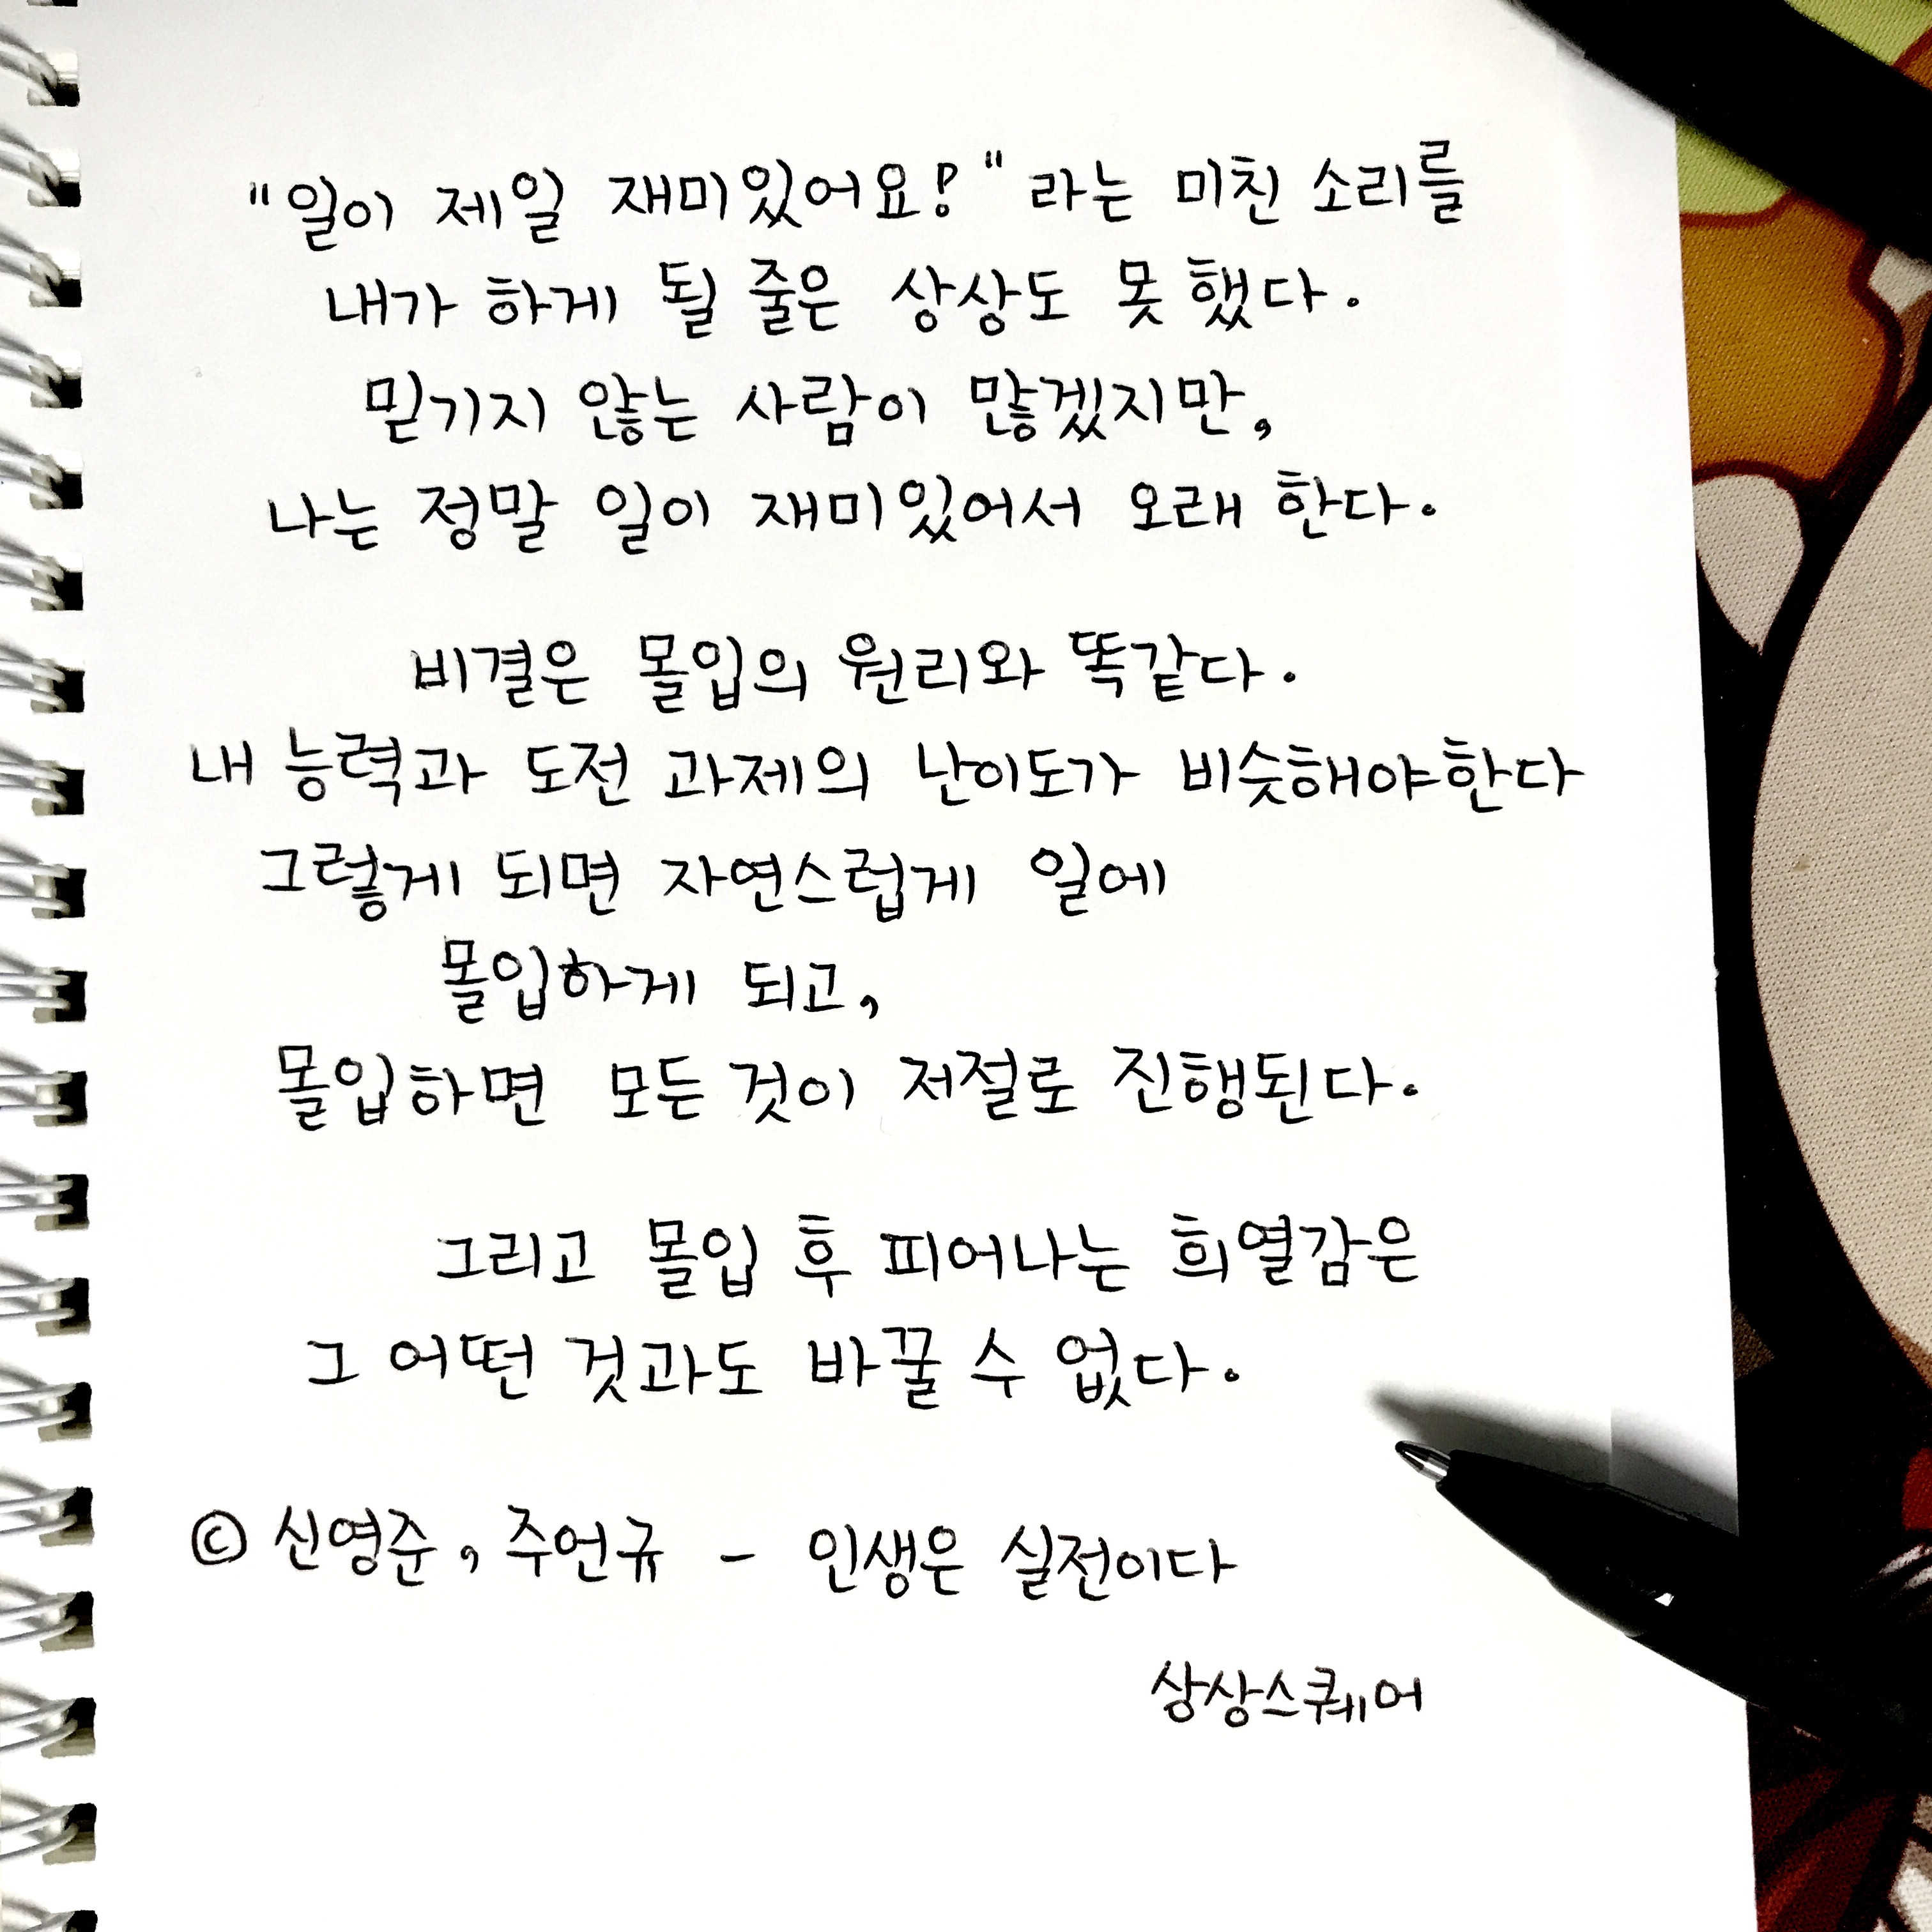 "일이 제일 재미있어요!" 라는 미친 소리를
내가 하게 될 줄은 상상도 못 했다.
믿기지 않는 사람이 많겠지만,
나는 정말 일이 재미있어서 오래 한다.
비결은 몰입의 원리와 똑같다.
내 능력과 도전 과제의 난이도가 비슷해야한다
그렇게 되면 자연스럽게 일에
몰입하게 되고,
몰입하면 모든 것이 저절로 진행된다.
그리고 몰입 후 피어나는 희열감은
그 어떤 것과도 바꿀 수 없다.
© 신영준, 주언규 - 인생은 실전이다
상상스퀘어